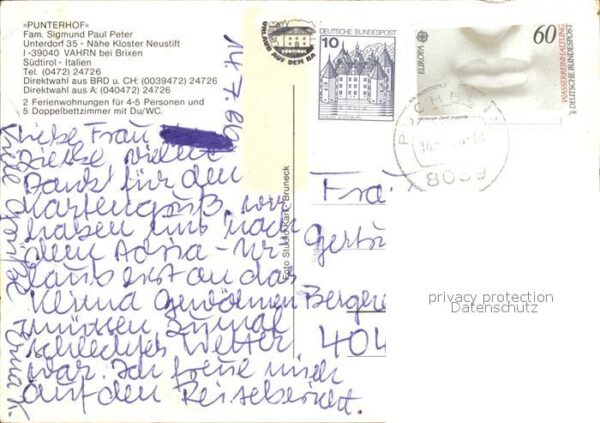 »PUNTERHOF«
Fam. Sigmund Paul Peter
Unterdorf 35 - Nähe Kloster Neustift
I-39040 VAHRN bei Brixen
Südtirol - Italien
Tel. (0472) 24726
Direktwahl aus BRD u. CH: (0039472) 24726
Direktwahl aus A: (040472) 24726
2 Ferienwohnungen für 4-5 Personen und
5 Doppelbettzimmer mit Du/WC.
14.7.86
Liebe Frau
vielen
Dank für den
Kartengruß, wir
haben uns nach
dem Adria-Ur-
laub erst an das
Klima gewöhnen
müssen, zumal
schlechtes Wetter
war. Ich freue mich
auf den Reisebericht.
Erna K.
Foto Studio Karl - Bruneck
URLAUB AUF DEM BA
SÜDTIROL
10
DEUTSCHE BUNDESPOST
EUROPA
60
WASSERREINHALTUNG
DEUTSCHE BUNDESPOST
8039
Frau
Gertr
Bergene
404
privacy protection
Datenschutz